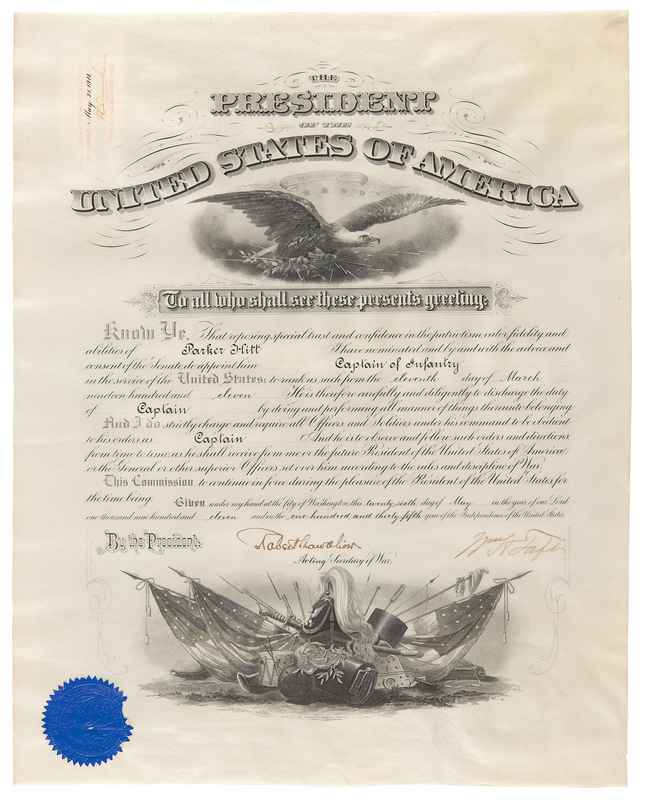 May 31, 1911.
THE
PRESIDENT
OF THE
UNITED STATES OF AMERICA
To all who shall see these presents greeting:
Know Ye, That reposing special trust and confidence in the patriotism, valor, fidelity and
abilities of Parker Hitt I have nominated and by and with the advice and
consent of the Senate do appoint him Captain of Infantry
in the service of the United States: to rank as such from the eleventh day of March
nineteen hundred and eleven He is therefore carefully and diligently to discharge the duty
of Captain by doing and performing all manner of things thereunto belonging.
And I do strictly charge and require all Officers and Soldiers under his command to be obedient
to his orders as Captain And he is to observe and follow such orders and directions
from time to time as he shall receive from me or the future President of the United States of America
or the General or other superior Officers set over him, according to the rules and discipline of War.
This Commission to continue in force during the pleasure of the President of the United States for
the time being.
Given under my hand at the City of Washington, this twenty sixth day of May in the year of our Lord
one thousand nine hundred and eleven and in the one hundred and thirty fifth year of the Independence of the United States.
By the President:
Robert Shaw Oliver
Wm H Taft
Acting Secretary of War.